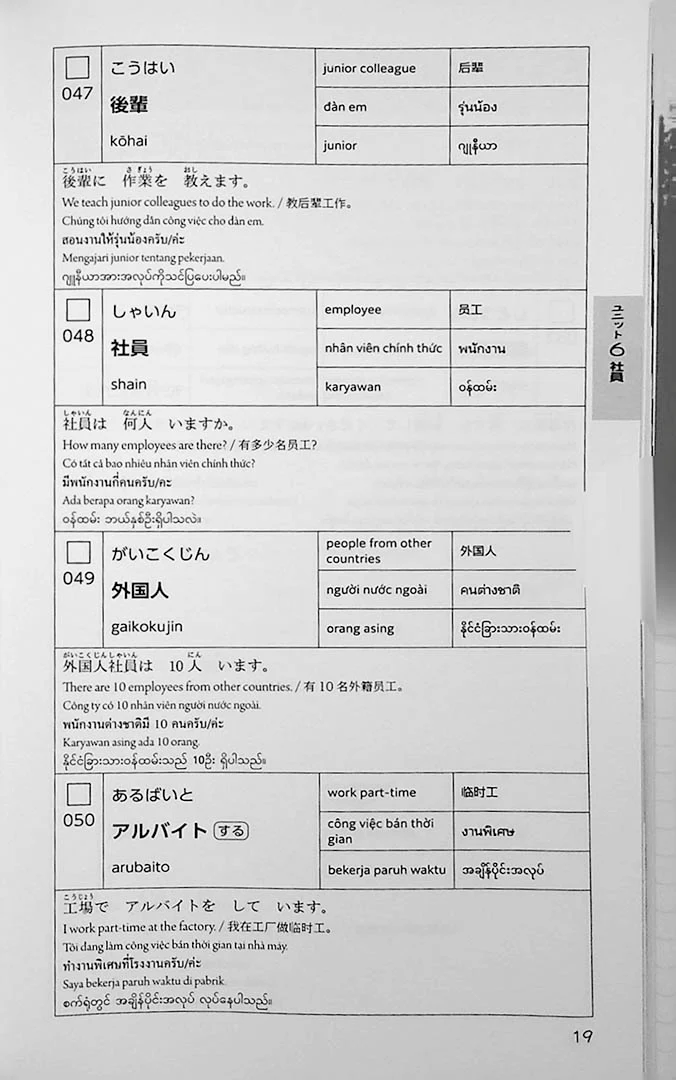 047
こうはい
後輩
kōhai
junior colleague
后辈
đàn em
รุ่นน้อง
junior
ဂျူနီယာ
こうはい さぎょう おし
後輩に 作業を 教えます。
We teach junior colleagues to do the work. / 教后辈工作。
Chúng tôi hướng dẫn công việc cho đàn em.
สอนงานให้รุ่นน้องครับ/ค่ะ
Mengajari junior tentang pekerjaan.
ဂျူနီယာအားအလုပ်ကိုသင်ပြပေးပါမည်။
048
しゃいん
社員
shain
employee
员工
nhân viên chính thức
พนักงาน
karyawan
ဝန်ထမ်း
しゃいん なんにん
社員は 何人 いますか。
How many employees are there? / 有多少名员工?
Có tất cả bao nhiêu nhân viên chính thức?
มีพนักงานกี่คนครับ/คะ
Ada berapa orang karyawan?
ဝန်ထမ်း ဘယ်နှစ်ဦးရှိပါသလဲ။
049
がいこくじん
外国人
gaikokujin
people from other
countries
外国人
người nước ngoài
คนต่างชาติ
orang asing
နိုင်ငံခြားသားဝန်ထမ်း
がいこくじんしゃいん にん
外国人社員は 10人 います。
There are 10 employees from other countries. / 有 10 名外籍员工。
Công ty có 10 nhân viên người nước ngoài.
พนักงานต่างชาติมี 10 คนครับ/ค่ะ
Karyawan asing ada 10 orang.
နိုင်ငံခြားသားဝန်ထမ်းသည် 10ဦး ရှိပါသည်။
050
あるばいと
アルバイト する
arubaito
work part-time
临时工
công việc bán thời
gian
งานพิเศษ
bekerja paruh waktu
အချိန်ပိုင်းအလုပ်
こうじょう
工場で アルバイトを して います。
I work part-time at the factory. / 我在工厂做临时工。
Tôi đang làm công việc bán thời gian tại nhà máy.
ทำงานพิเศษที่โรงงานครับ/ค่ะ
Saya bekerja paruh waktu di pabrik.
စက်ရုံတွင် အချိန်ပိုင်းအလုပ် လုပ်နေပါသည်။
ユニット6 社員
19